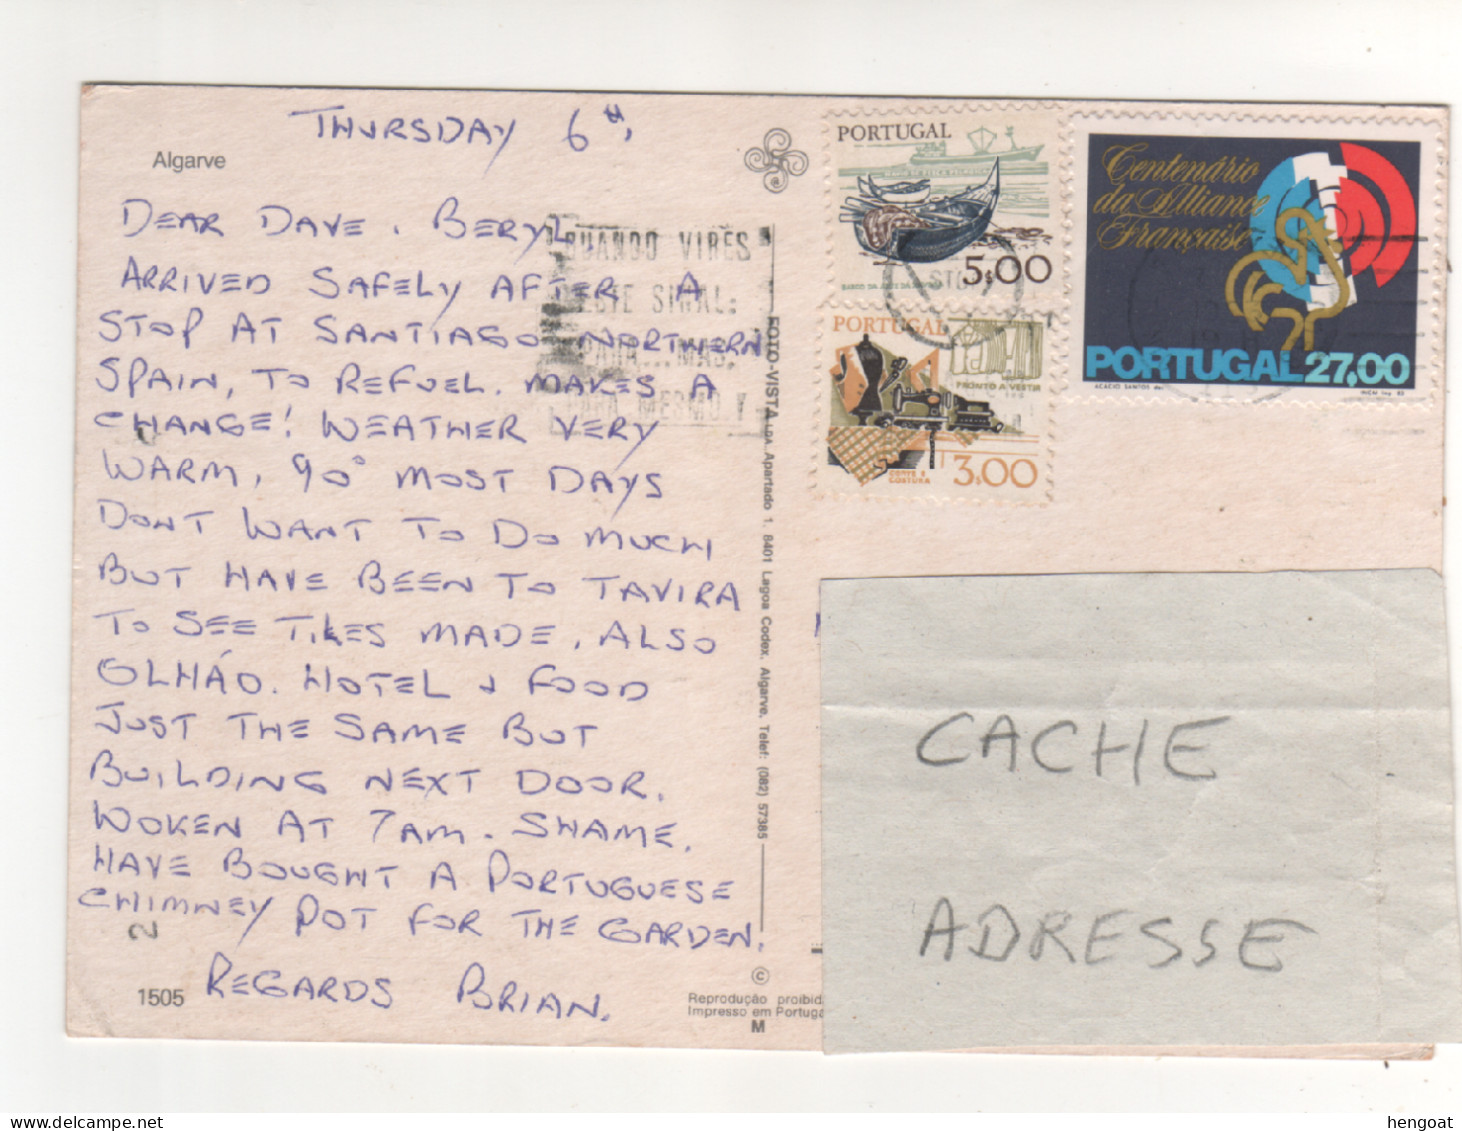 THURSDAY 6TH,
Algarve
DEAR DAVE, BERYL
ARRIVED SAFELY AFTER A
STOP AT SANTIAGO NORTHERN
SPAIN, TO REFUEL. MAKES A
CHANGE! WEATHER VERY
WARM, 90° MOST DAYS
DONT WANT TO DO MUCH
BUT HAVE BEEN TO TAVIRA
TO SEE TILES MADE, ALSO
OLHÁO. HOTEL & FOOD
JUST THE SAME BUT
BUILDING NEXT DOOR.
WOKEN AT 7AM. SHAME.
HAVE BOUGHT A PORTUGUESE
CHIMNEY POT FOR THE GARDEN.
REGARDS BRIAN.
2
1505
QUANDO VIRES
ESTE SINAL:
PARA... MAS,
PARA MESMO
FOTO-VISTA LDA. Apartado 1. 8401 Lagoa Codex. Algarve. Telef: (082) 57385
©
Reprodução proibid
Impresso em Portuga
M
PORTUGAL
5$00
PORTUGAL
PRONTO A VESTIR
CORTE E
COSTURA
3$00
Centenário
da Alliance
Française
PORTUGAL 27,00
ACACIO SANTOS des.
INCM imp. 83
CACHE
ADRESSE
delcampe.net
hengoat